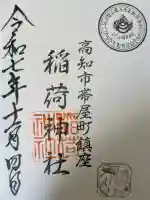 高知市帯屋町鎮座
稲荷神社
令和七年十一月四日